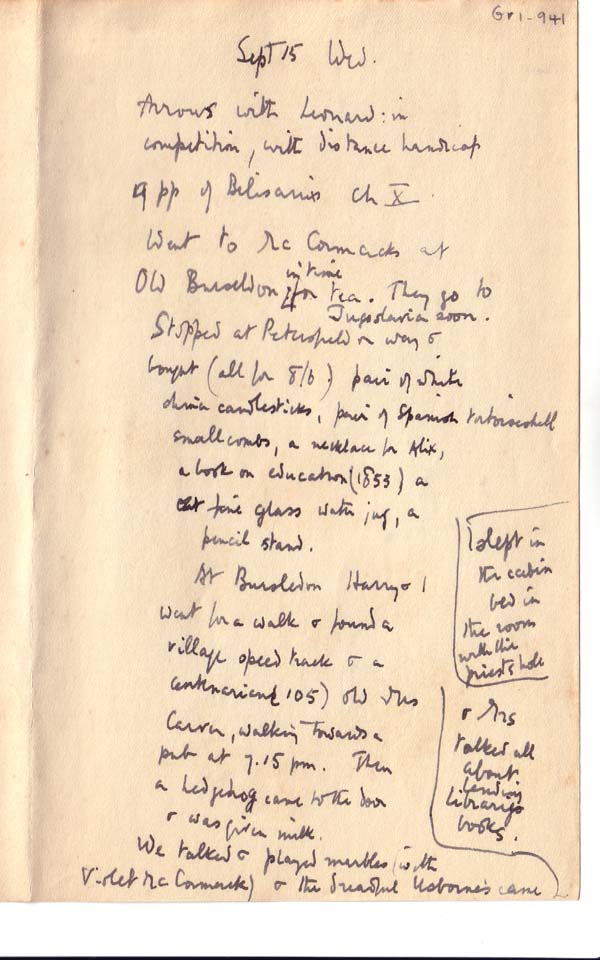 Gr1-941
Sept 15 Wed.
Arrows with Leonard: in
competition, with distance handicap
9 pp of Belisarius Ch X
Went to McCormacks at
Old Bursledon in time for tea. They go to
Jugoslavia soon.
Stopped at Petersfield on way &
bought (all for 8/6) pair of white
china candlesticks, pair of Spanish tortoiseshell
small combs, a necklace for Alix,
a book on education (1853) a
fine glass water jug, a
pencil stand.
At Bursledon Harry & I
went for a walk & found a
village speed track & a
centenarian (105) old Mrs
Carver, walking towards a
pub at 7.15 pm. Then
a hedgehog came to the door
& was given milk.
We talked & played marbles (with
Violet McCormack) & the dreadful Usbornes came
& Mrs
talked all
about
lending
libraries
books.
I slept in
the cabin
bed in
the room
with the
priests hole